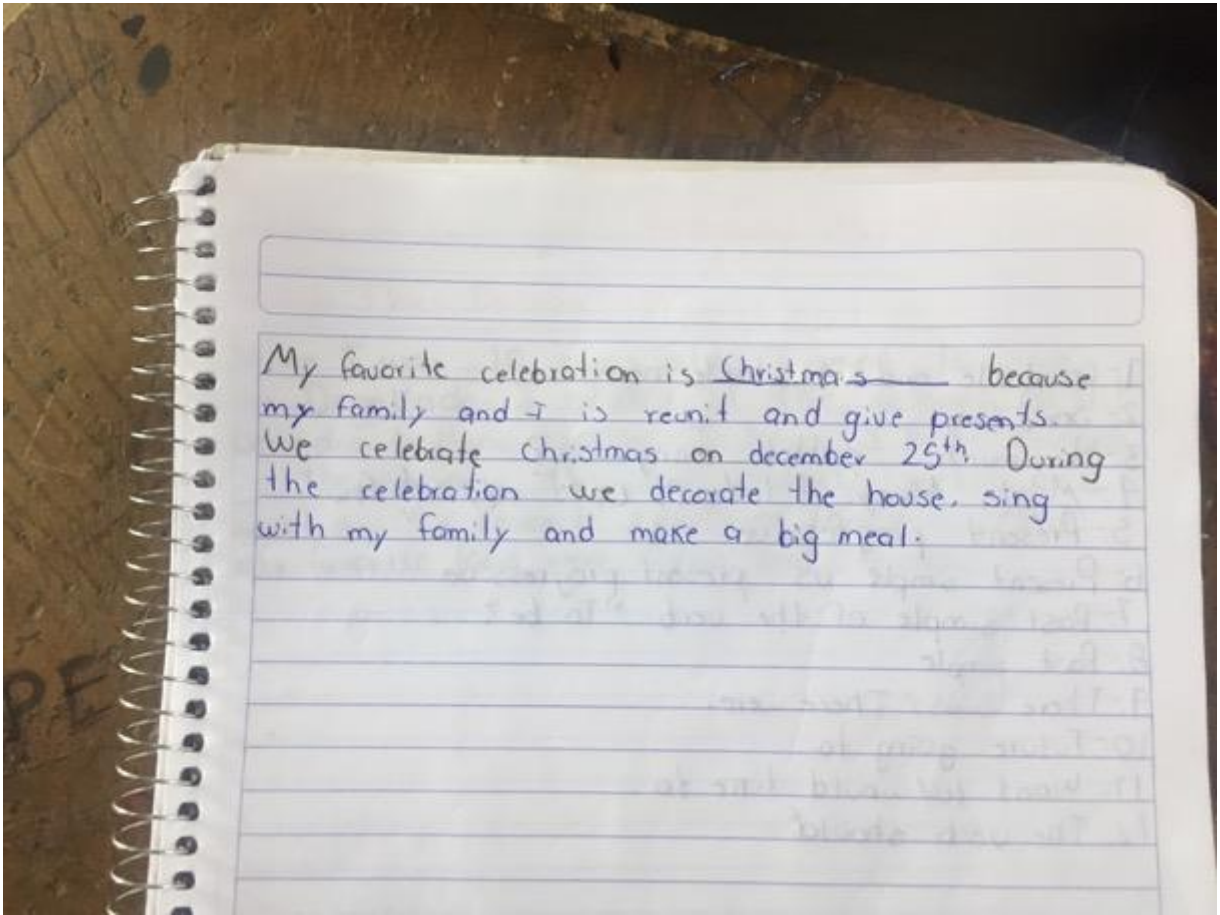 My favorite celebration is Christmas because
my family and I is reunit and give presents.
We celebrate Christmas on december 25th. During
the celebration we decorate the house, sing
with my family and make a big meal.
PE